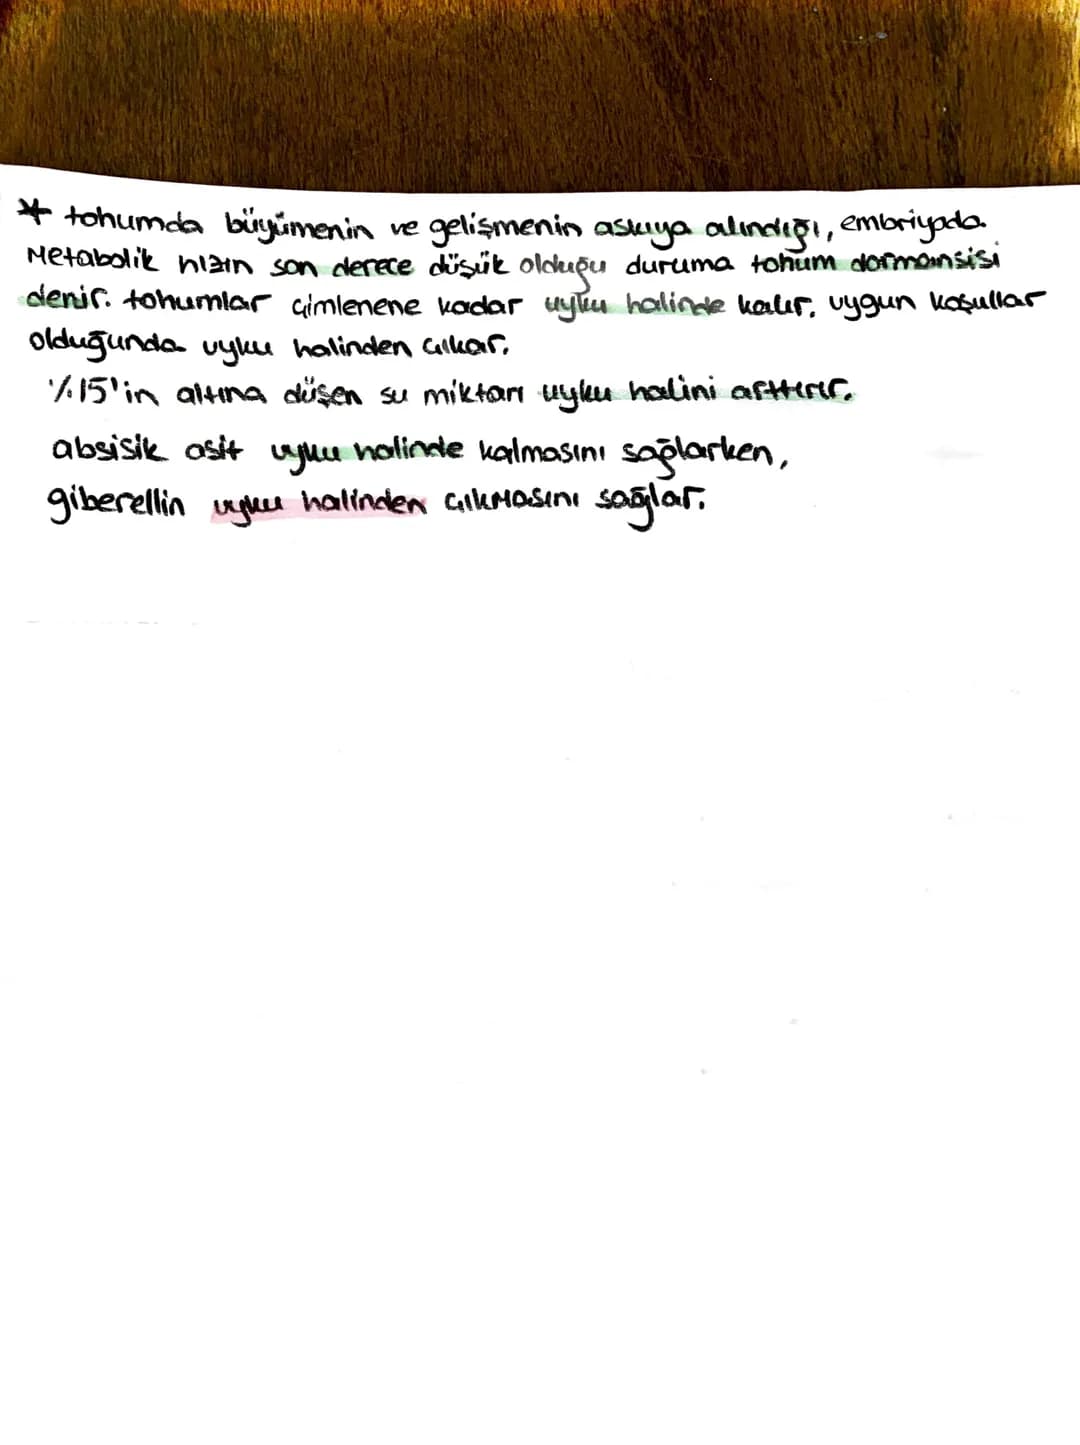 * tohumda büyümenin ve gelişmenin askıya alındığı, embriyoda
Metabolik hızın son derece düşük olduğu duruma tohum dormansisi
denir. tohumlar çimlenene kadar uyku halinde kalır, uygun koşullar
olduğunda uyku halinden çıkar.
%15'in altına düşen su miktarı uyku halini arttırır.
absisik asit uyku halinde kalmasını sağlarken,
giberellin uyku halinden çıkMasını sağlar.